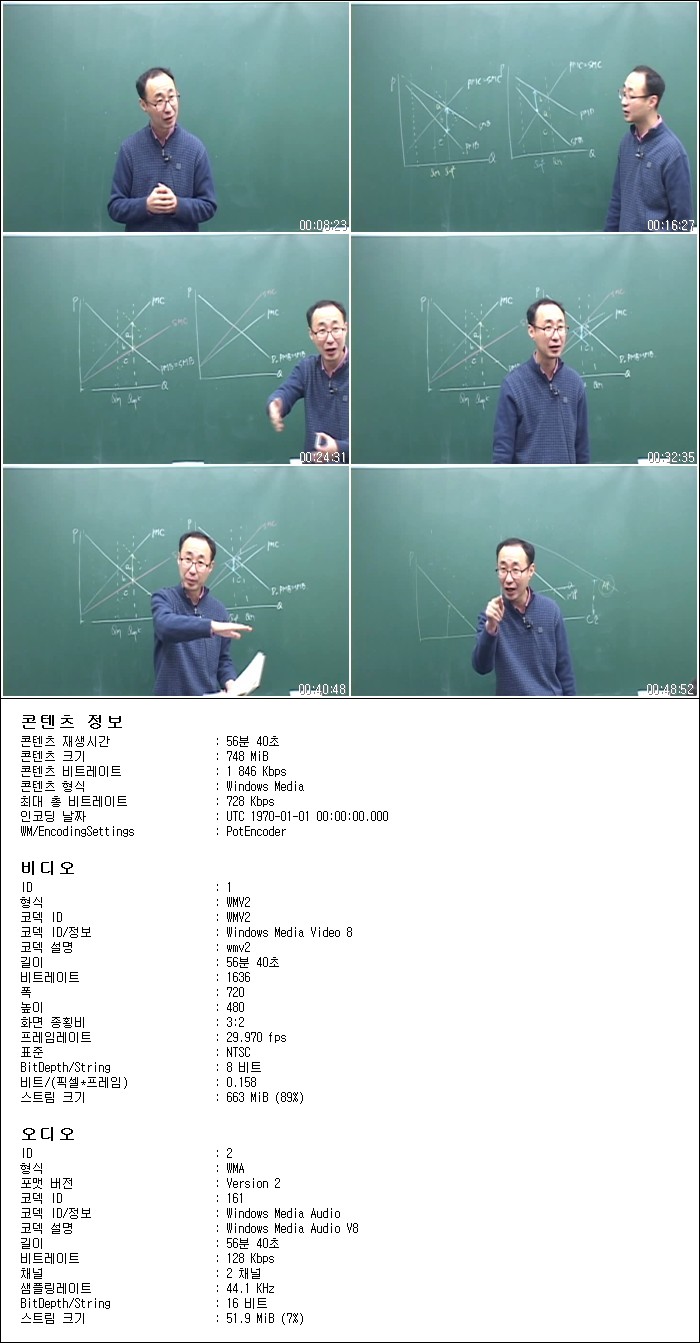 00:08:23
P
PMC=SMC
SMB
PMB
Q
P
PMC=SMC
PMB
SMB
Q
00:16:27
P
PMC
SMC
PMB=SMB
Q
P
SMC
PMC
D, PMB=SMB
Q
00:24:31
P
PMC
D, PMB=SMB
Q
00:32:35
P
PMC
Q
P
SMC
PMC
D, PMB=SMB
Q
00:40:48
00:48:52
콘텐츠 정보
콘텐츠 재생시간 : 56분 40초
콘텐츠 크기 : 748 MiB
콘텐츠 비트레이트 : 1 846 Kbps
콘텐츠 형식 : Windows Media
최대 총 비트레이트 : 728 Kbps
인코딩 날짜 : UTC 1970-01-01 00:00:00.000
WM/EncodingSettings : PotEncoder
비디오
ID : 1
형식 : WMV2
코덱 ID : WMV2
코덱 ID/정보 : Windows Media Video 8
코덱 설명 : wmv2
길이 : 56분 40초
비트레이트 : 1636
폭 : 720
높이 : 480
화면 종횡비 : 3:2
프레임레이트 : 29.970 fps
표준 : NTSC
BitDepth/String : 8 비트
비트/(픽셀*프레임) : 0.158
스트림 크기 : 663 MiB (89%)
오디오
ID : 2
형식 : WMA
포맷 버전 : Version 2
코덱 ID : 161
코덱 ID/정보 : Windows Media Audio
코덱 설명 : Windows Media Audio V8
길이 : 56분 40초
비트레이트 : 128 Kbps
채널 : 2 채널
샘플링레이트 : 44.1 KHz
BitDepth/String : 16 비트
스트림 크기 : 51.9 MiB (7%)